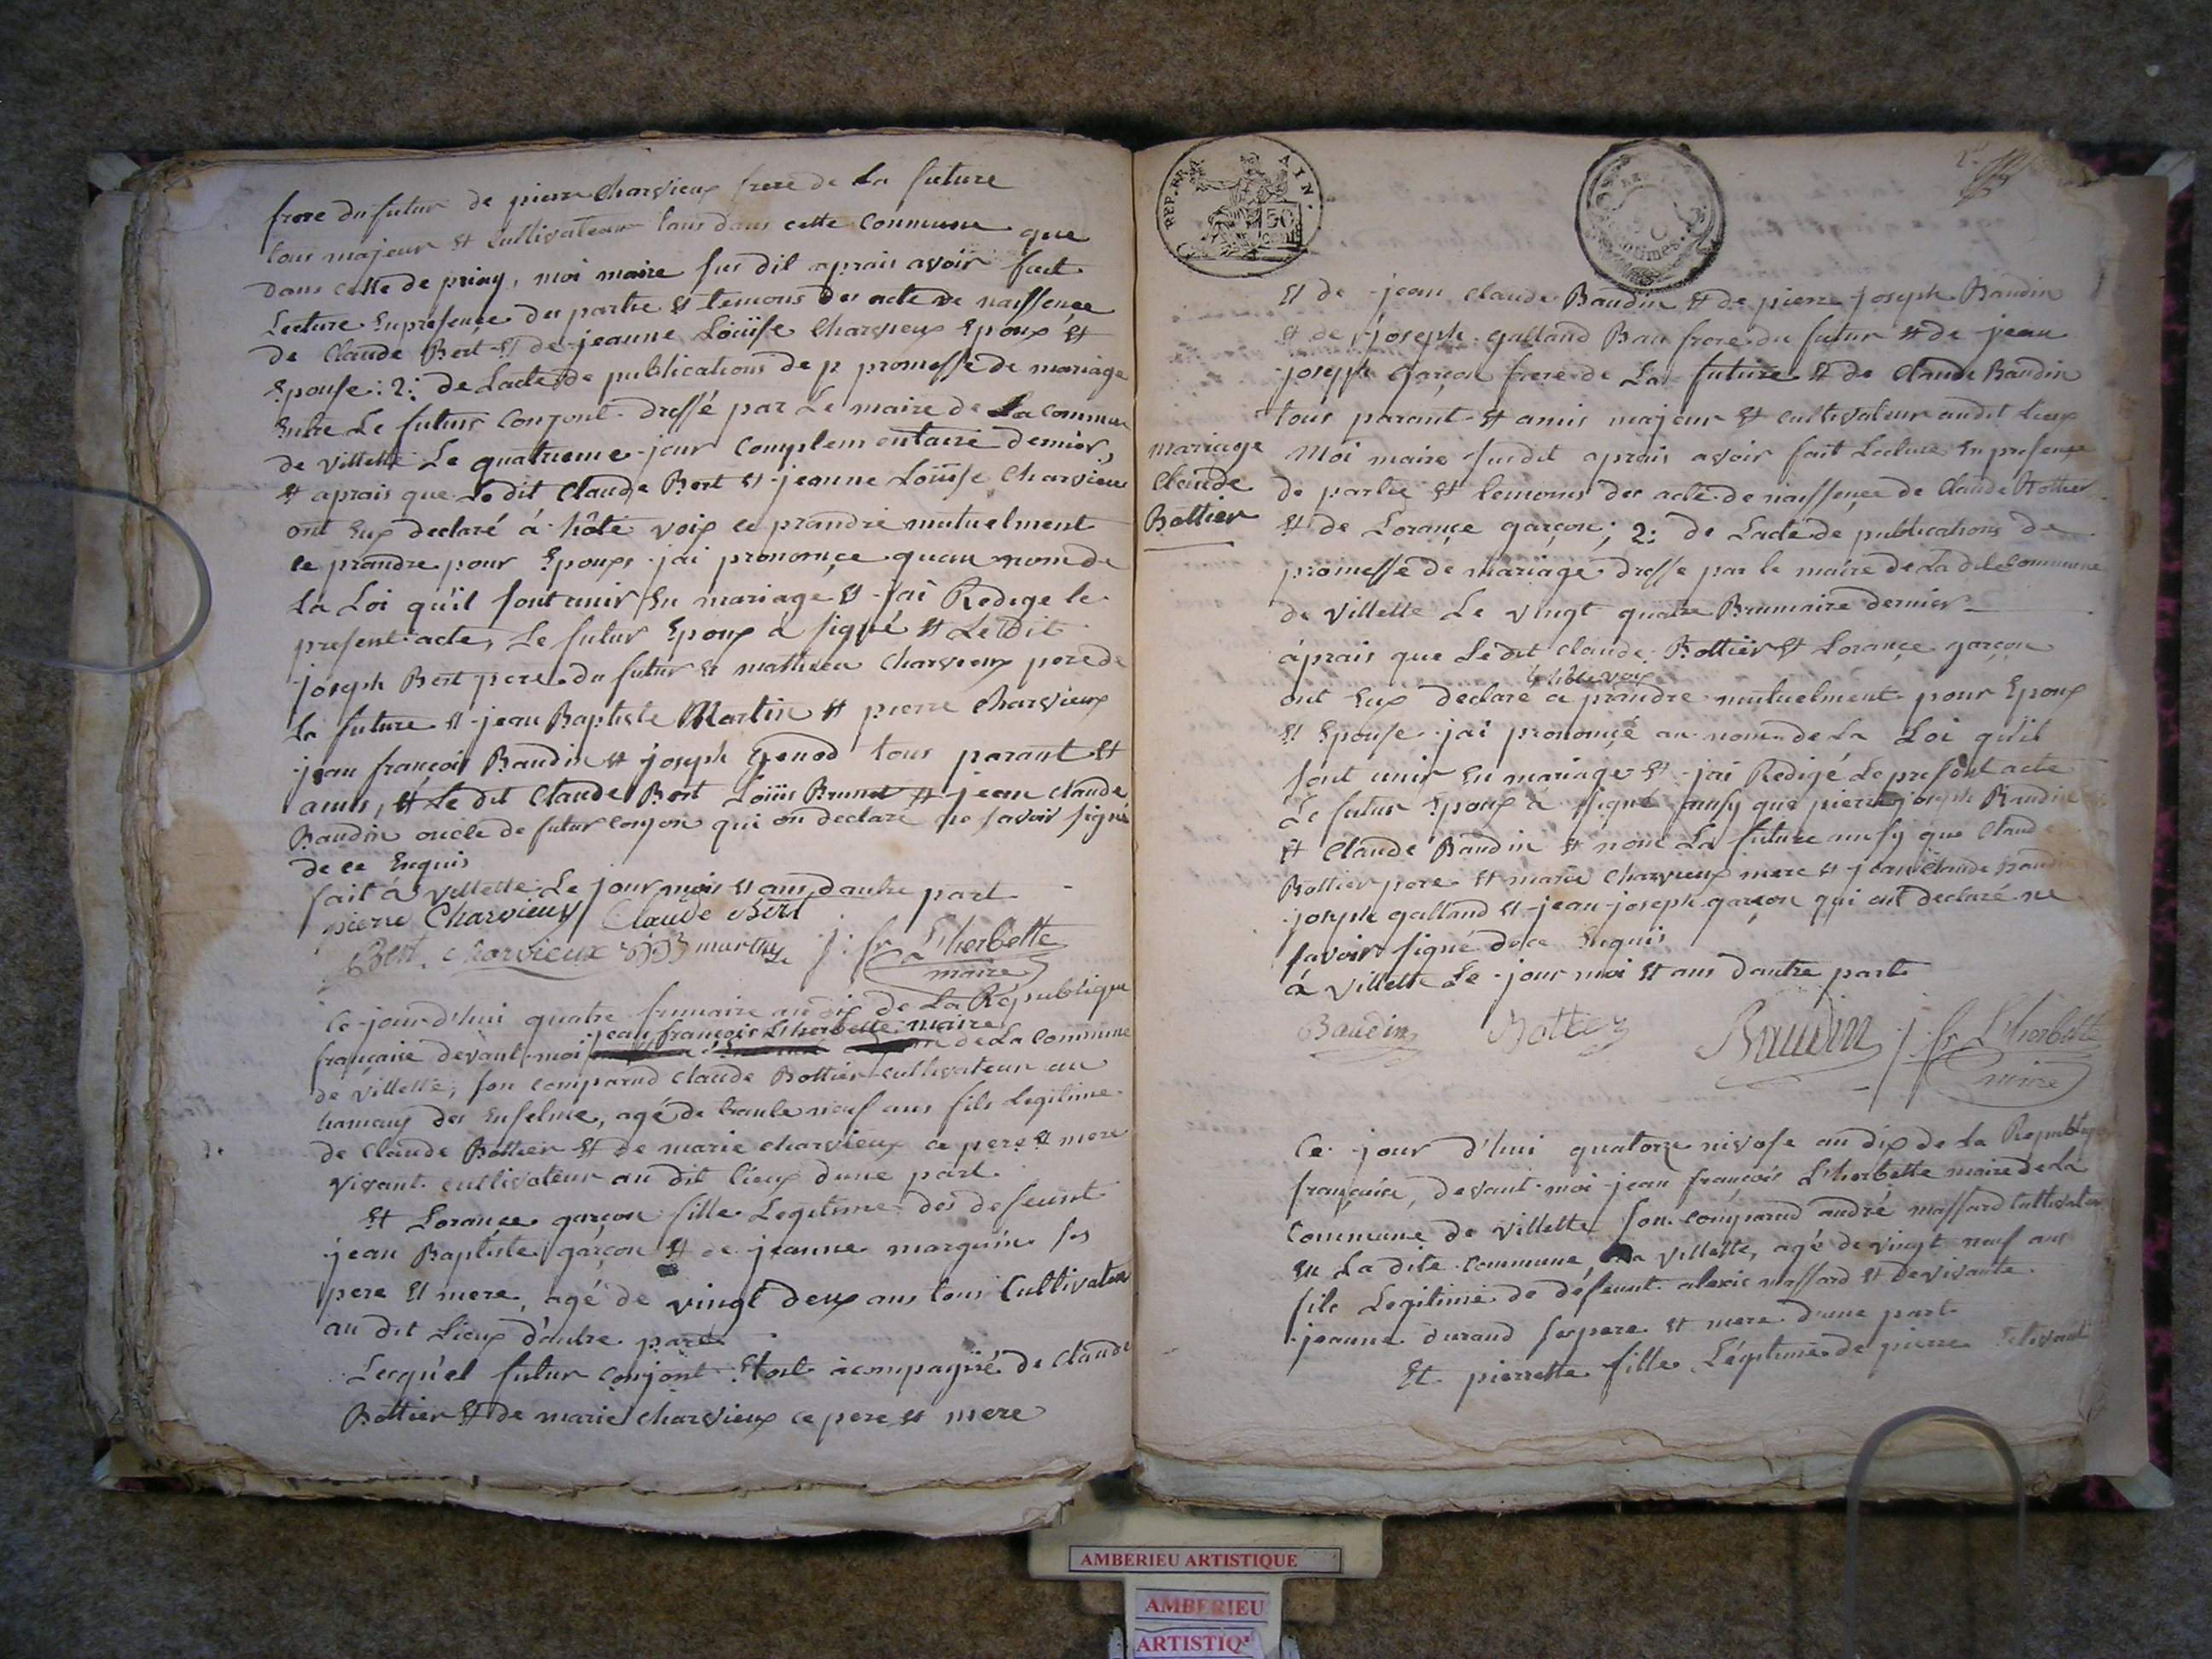 frere du futur de pierre Charvieux frere de La future
tous majeur et Cultivateur tous dans cette Commune que
dans celle de priay, moi maire sus dit aprais avoir fait
Lecture En presençe des partie et temons des acte de naissençe
de Claude Bert et de jeanne Loüise Charvieux Epoux et
Epouse: 2: de Lacte de publications de p promesse de mariage
Entre Le futurs Conjont dressé par Le maire de La commun
de villette Le quatrieme jour Complementaire dernier,
et aprais que Le dit Claude Bert et jeanne Loüise Charvieux
ont Eux declaré á hôte voix ce prandre mutuelment
ce prandre pour Epoux jai prononçe quau nom de
La Loi qu'il sont unir En mariage et jai Redige le
present acte, Le futur Epoux a signé et Le dit
joseph Bert pere du futur et mathieu Charvieux pere de
La future et jean Baptiste Martin et pierre Charvieux
jean françois Baudin et joseph Genod tous parant et
amis, et Le dit Claude Bert Loüis Brunet et jean Claude
Baudin oncle de futur Conjon qui on declaré ne savoir signé
de ce Enquis
fait á villette Le jour mois et ans dautre part
pierre Charvieux Claude Bert
Bert Charvieux j: fr L'herbette
maire
Ce jourd'hui quatre frimaire an dix de La Republique
jean françois L'herbette maire
françaisе devant moi de La Commune
de villette, son comparud Claude Bottier cultivateur au
hamaux des Enselme, agé de trante neuf ans fils legitime
de Claude Bottier et de marie Charvieux ce pere et mere
vivant cultivateur au dit lieux dune part
et Lorançe garçon fille Legitime des defeunt
jean Baptiste garçon et de jeanne marguin ses
pere et mere, agé de vingt deux ans tous Cultivateur
au dit Lieux d'autre part
Lecqu'el futur Conjont Etant acompagné de Claude
Bottier et de marie Charvieux ce pere et mere
REP. FRA. AIN.
50 cent
mariage
Claude
Bottier
et de jean Claude Baudin et de pierre joseph Baudin
et de joseph galland Bau frere du futur et de jean
joseph garçon frere de La future et de Claude Baudin
tous parant et amis majeur et cultivateur audit Lieux
Moi maire susdit aprais avoir fait Lecture En presençe
de partie et temons des acte de naissençe de Claude Bottier
et de Lorançe garçon; 2: de Lacte de publications de
promesse de mariage dresse par le maire de La dite Commune
de villette Le vingt quatre Brumaire dernier
áprais que Le dit Claude Bottier et Lorançe garçon
ont Eux declaré a prandre mutuelment pour Epoux
et Epouse jai prononçé au nom de La Loi qu'il
sont unir En mariage et jai Redigé Le present acte
Le futur Epoux a signé aussy que pierre joseph Baudin
et Claude Baudin et non La future aussy que Claude
Bottier pere et marie Charvieux mere et jean Claude Baudin
joseph galland et jean joseph garçon qui ont declaré ne
savoir signé de ce Enquis
á villette Le jour moi et ans dautre part
Baudin Bottier Baudin j. fr L'herbette
maire
Ce jour d'hui quatorze nivose an dix de La Republique
françaisе, devant moi jean françois L'herbette maire de La
Commune de villette son comparud andré massard Cultivateur
En La dite Commune, villette, agé de vingt neuf ans
fils Legitime de defeunt alexis massard et de vivante
jeanne durand ses pere et mere dune part
Et pierrette fille Légitime de pierre
AMBERIEU ARTISTIQUE
AMBERIEU
ARTISTIQ